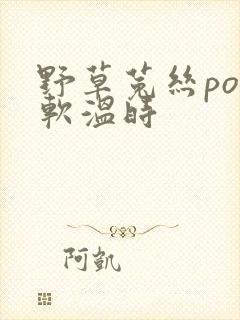 野草菟絲po
軟溫時
阿凱